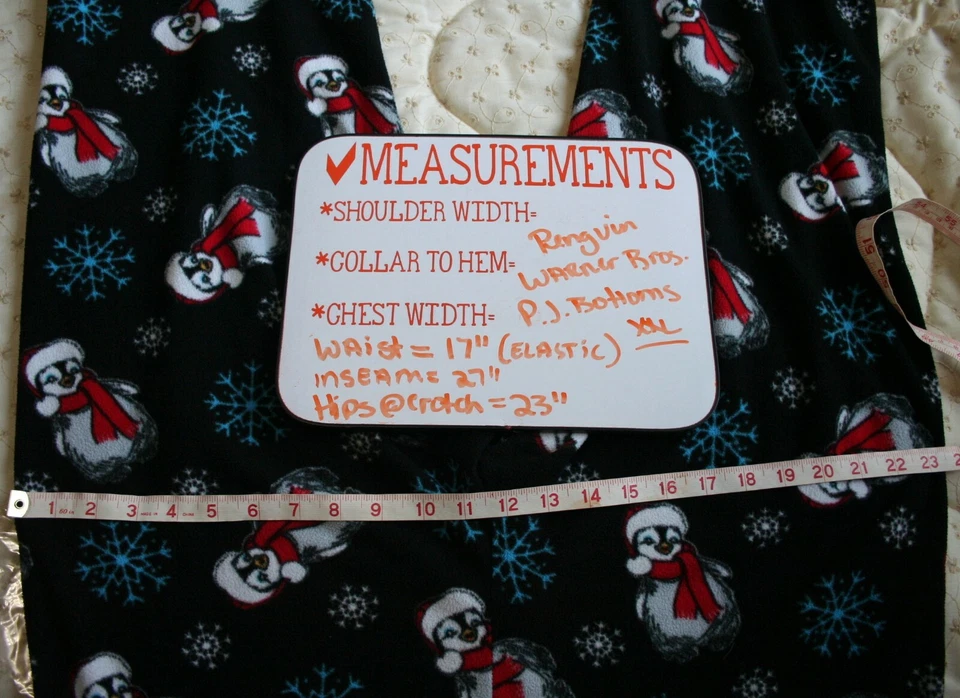 ✓MEASUREMENTS
*SHOULDER WIDTH=
*COLLAR TO HEM=
*CHEST WIDTH=
Penguin
WARNER Bros.
P.J. Bottoms
XXL
WAist = 17" (ELASTIC)
inSEAM= 27"
Hips @ Crotch = 23"
1 2 3 4 5 6 7 8 9 10 11 12 13 14 15 16 17 18 19 20 21 22 23